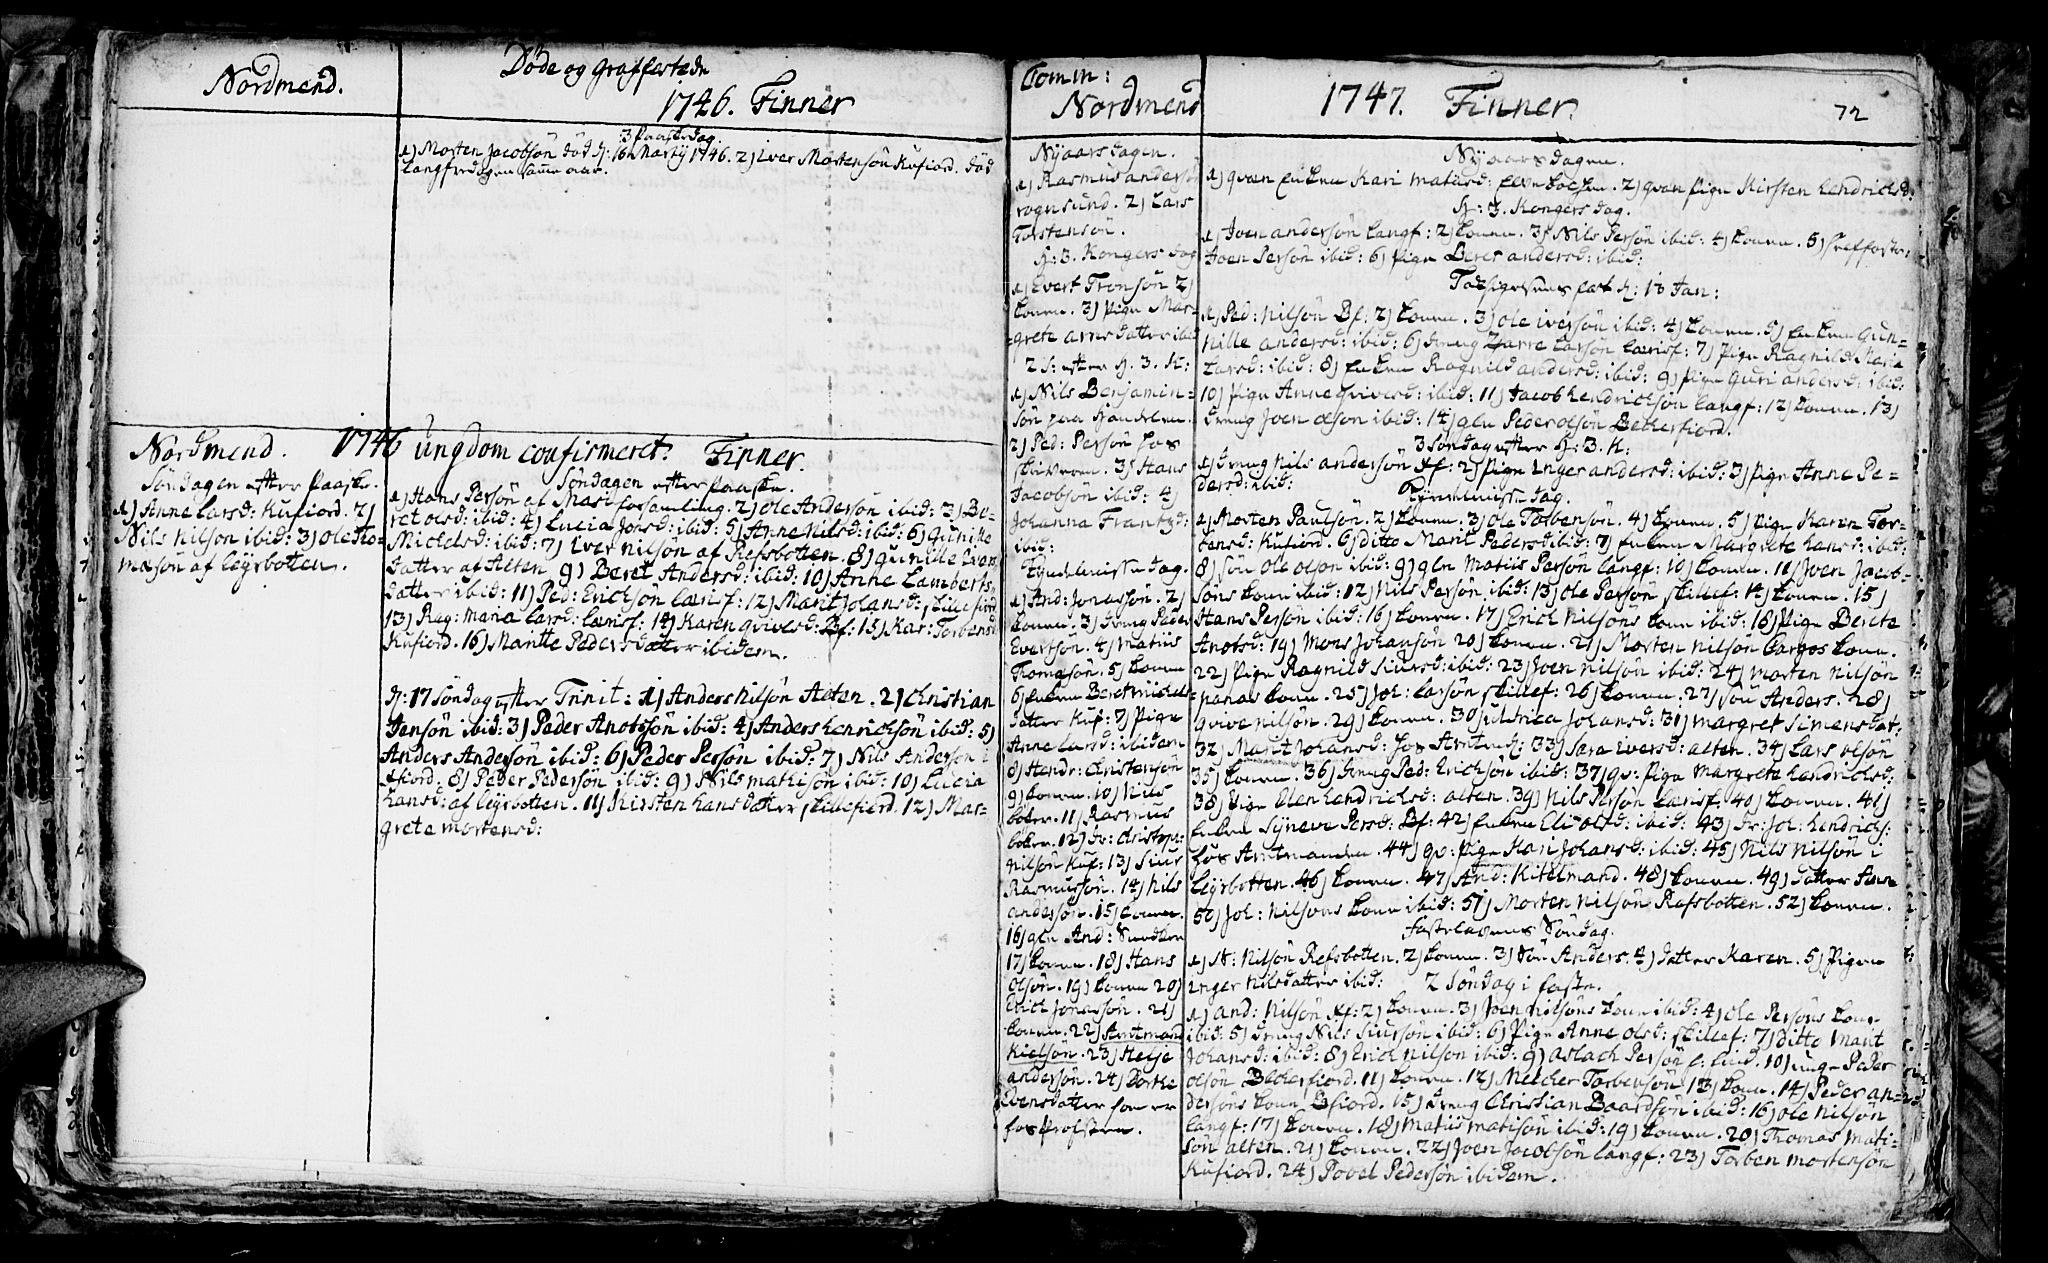 Nordmend.
Döde og graffæstede
1746. Finner
3 Paaskedag
1) Morten Jacobsön död d: 16 Martij 1746. 2) Iver Mortensön Kufiord. död
langfredagen samme aar.
Nordmend. 1746 ungdom confirmeret. Finner.
Söndagen efter Paaske.
1) Anne Larsd: Kufiord. 2)
Nils Nilsön ibid: 3) Ole To-
masön af Leÿrbotten.
Söndagen efter Paaske.
1) Hans Persön af Masi forsamling. 2) Ole Andersön ibid: 3) Be-
ret olsd: ibid: 4) Lucia Jonsd: ibid: 5) Anne Nilsd: ibid: 6) Gunille
Mickelsd: ibid: 7) Iver nilsön af Refsbotten. 8) Gunille Ivers
datter af Alten 9) Beret Andersd: ibid: 10) Anne Lamberts
datter ibid: 11) Ped: Ericksön Lærisf: 12) Marit Johansd: skillefiord
13) Rag: Maria Larsd: Lærisf: 14) Karen qvivesd: Bf: 15) Kar: Torbensd
Kufiord. 16) Maritte Pedersdatter ibidem.
d: 17 Söndag efter Trinit: 1) Anders Nilsön Alten. 2) Christian
Jansön ibid: 3) Peder Anotsön ibid: 4) Anders henricksön ibid: 5)
Anders Andersön ibid: 6) Peder Persön ibid: 7) Nils Andersön i
xfiord. 8) Peder Pedersön ibid: 9) Nils mathisön ibid: 10) Lucia
hansd: af Leÿrbotten. 11) Kirsten hansdatter skillefiord. 12) Mar-
grete mortensd:
Comm:
Nordmend
Nÿaarsdagen.
1) Rasmus anders
rognsund. 2) Lars
Torstensön.
H: 3. Kongers dag
1) Evert Tronsön 2)
konen. 3) Pige Mar-
grete arnesdatter ibid
2 S: efter H. 3. K:
1) Nils Benjamin-
sön paa
2) Ped: Persön hos
3) Hans
Jacobsön ibid: 4)
Johanna Frantzd:
ibid:
Kyndelmisse dag.
1) And: Jonassön. 2)
konen. 3) dreng Peder
Evertsön. 4) Matiis
Thomasön. 5) konen
6) enken Beret mickels-
datter Kuf: 7) Pige
Anne Larsd: ibidem
8) Hendr: Christensön
9) konen. 10) Nils
11) Rasmus
12) Christoph:
Nilsön Kuf: 13) Siur
Rasmussön. 14) Nils
andersön. 15) konen.
16) gln And:
17) konen. 18) Hans
olsön. 19) konen 20)
Erick Jonassön. 21)
konen. 22) Amtmand
Kielsön. 23) Helje
andersön. 24) Dorthe
Evensdatter som er
hos Profsten.
1747. Finner.
72
Nÿaarsdagen.
1) qvæn enken Kari matiisd: 2) qvæn Pige Kirsten hendricksd.
H: 3. Kongers dag.
1) Joen andersön Langf: 2) konen. 3) Nils Persön ibid: 4) konen. 5)
Joen Persön ibid: 6) Pige Beret andersd: ibid:
Tacksigelsens fæst d: 18 Jan:
1) Ped: Nilsön Bf: 2) konen. 3) Ole iversön ibid: 4) konen. 5) enken Gun-
nille andersd: ibid: 6) dreng Zarre Larsön Lærisf: 7) Pige Ragnild Maria
Larsd: ibid: 8) enken Ragnild andersd: ibid: 9) Pige Guri andersd: ibid:
10) Pige Anne qvivesd: ibid: 11) Jacob hendricksön Langf: 12) konen. 13)
dreng Joen olsön ibid: 14) gln Peder olsön Beckerfiord.
3 Söndag efter H: 3. K:
1) dreng Nils andersön xf: 2) Pige Inger andersd: ibid: 3) Pige Anne Pe-
dersd: ibid:
Kyndelmisse dag.
1) Morten Paulsön. 2) konen. 3) Ole Torbensön. 4) konen. 5) Pige Karen Tor-
bensd: Kufiord. 6) ditto Marit Pedersd ibid: 7) enken Margrete hansd: ibid:
8) sön ole olsön ibid: 9) gln Matiis Persön Langf: 10) konen. 11) Joen Jacob-
söns kone ibid: 12) Nils Persön ibid: 13) Ole Persön skillef: 14) konen. 15)
Hans Persön ibid: 16) konen. 17) Erick Nilsöns kone ibid: 18) Pige Berete
Anotsd: 19) Mons Johansön 20) konen. 21) Morten nilsön Gargos kone.
22) Pige Ragnild Siursd: ibid: 23) Joen nilsön ibid: 24) Morten Nilsön
nanas konen. 25) Joh: Larsön skillef: 26) konen. 27) sön Anders. 28)
qvive nilsön. 29) konen. 30) uldrica Johansd: 31) margret Simensdat:
32) Marit Johansd: hos Amtmd: 33) Sara iversd: alten. 34) Lars olsön
35) konen. 36) dreng Ped: Ericksön ibid: 37) qv: Pige Margrete hendricksd:
38) Pige Elen hendricksd: alten. 39) Nils Persön Lærisf. 40) konen. 41)
enken Sÿneve Persd: Bf: 42) enken Eli olsd: ibid: 43) dr: Joh: hendricks:
hos Amtmanden. 44) qv: Pige Kari Johansd: ibid: 45) Nils Nilsön i
Leÿrbotten. 46) konen. 47) And: Kitelmand. 48) konen. 49) datter Anne
50) Joh: Nilsöns kone ibid: 51) Morten Nilsön Refsbotten. 52) konen.
Fastelavens Söndag.
1) N: Nilsön Refsbotten. 2) konen. 3) Sön Anders. 4) datter Karen. 5) Pigen
Inger Nilsdatter ibid:
2 Söndag i faste.
1) And: Nilsön xf: 2) konen. 3) Joen nilsöns kone ibid: 4) Ole Persöns kone
ibid: 5) dreng Nils Siursön ibid: 6) Pige Anne olsd: skillef: 7) ditto Marit
Johansd: ibid: 8) Erick Nilsön ibid: 9) Aslach Persön ibid. 10) unge Peder
olsön Beckerfiord. 11) konen. 12) Melcher Torbensön 13) kone. 14) Peder an-
dersöns kone, Bfiord. 15) dreng Christian Baardsön ibid: 16) Ole Nilsön
Langf: 17) konen. 18) Matiis matisön ibid: 19) konen. 20) Thomas Mati-
sön alten. 21) konen. 22) Joen Jacobsön Langf: 23) Torben mortensön
Kufiord. 24) Povel Pedersön ibidem.